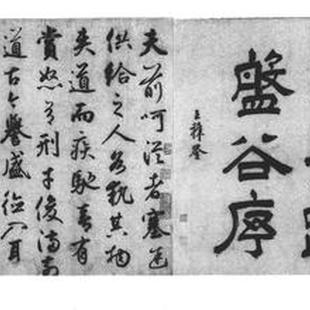 盤谷序
王穉登
夫前呵從者塞途
供給之人各執其物
夾道而疾馳喜有
賞怒有刑才俊滿前
道古今譽盛德入耳